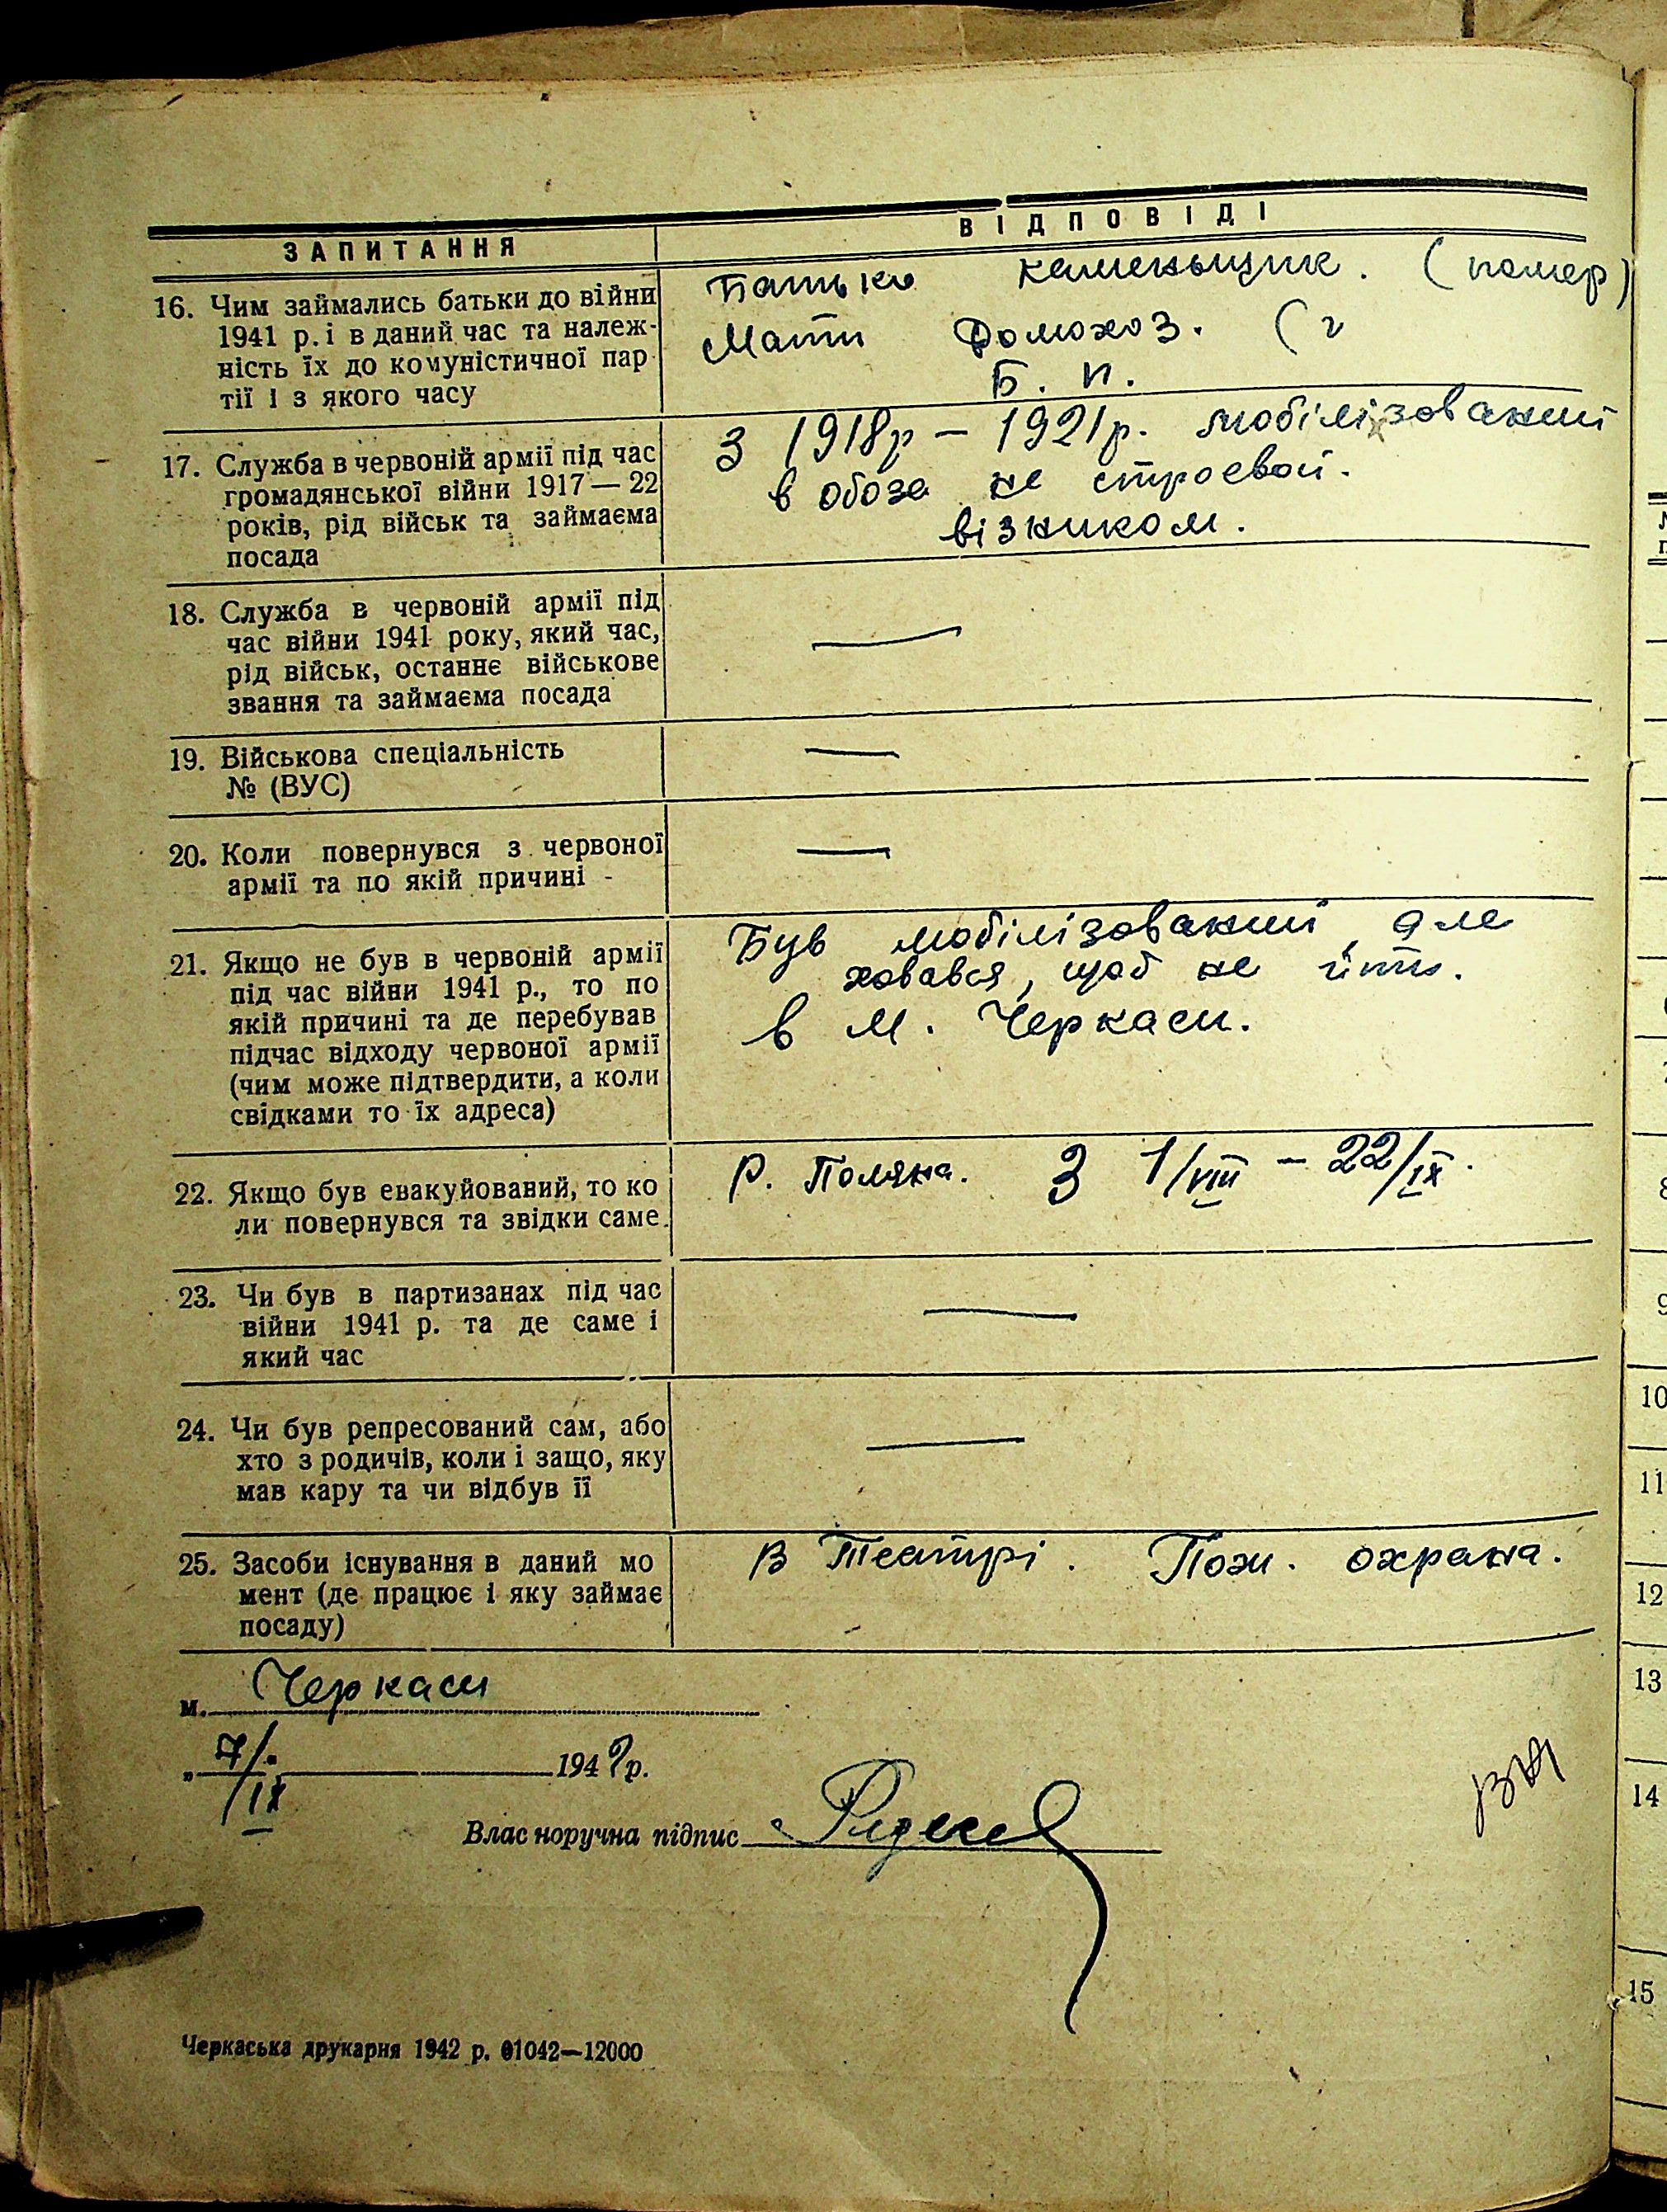 ЗАПИТАННЯ
ВІДПОВІДІ
16. Чим займались батьки до війни
1941 р. і в даний час та належ-
ність їх до комуністичної пар
тії і з якого часу
Батько каменьщик. (помер)
Мати Домохоз. (
Б. п.
17. Служба в червоній армії під час
громадянської війни 1917 — 22
років, рід військ та займаєма
посада
З 1918р – 1921р. мобілізований
в обоза не строевой.
візником.
18. Служба в червоній армії під
час війни 1941 року, який час,
рід військ, останнє військове
звання та займаєма посада
—
19. Військова спеціальність
№ (ВУС)
—
20. Коли повернувся з червоної
армії та по якій причині -
—
21. Якщо не був в червоній армії
під час війни 1941 р., то по
якій причині та де перебував
підчас відходу червоної армії
(чим може підтвердити, а коли
свідками то їх адреса)
Був мобілізований, але
ховався, щоб не йти.
в м. Черкаси.
22. Якщо був евакуйований, то ко
ли повернувся та звідки саме.
Р. Поляна. З 1/VIII – 22/IX.
23. Чи був в партизанах під час
війни 1941 р. та де саме і
який час
—
24. Чи був репресований сам, або
хто з родичів, коли і защо, яку
мав кару та чи відбув її
—
25. Засоби існування в даний мо
мент (де працює і яку займає
посаду)
В Театрі. Пож. охрана.
м. Черкаси
„ 7/IX 194 р.
Власноручна підпис
Черкаська друкарня 1942 р. 01042—12000
9
10
11
12
13
14
15